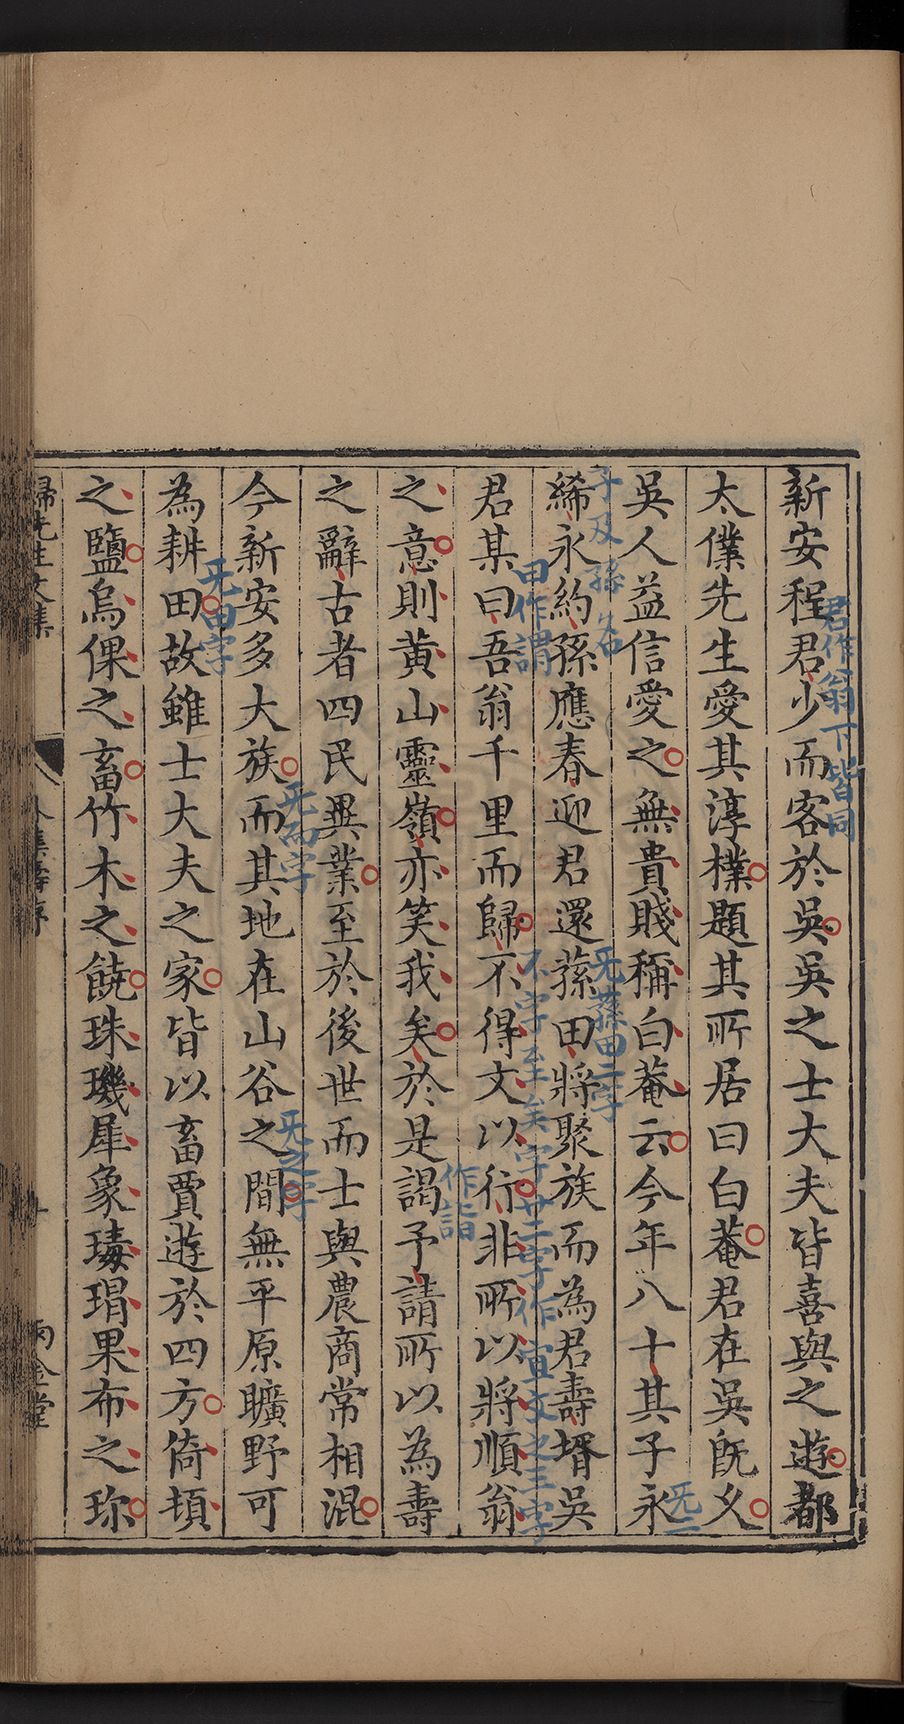 新安程君少而客於吳吳之士大夫皆喜與之遊都
太僕先生愛其淳樸題其所居曰白菴君在吳旣久
吳人益信愛之無貴賤稱白菴云今年八十其子永
綈永約孫應春迎君還蓀田將聚族而為君壽壻吳
君某曰吾翁千里而歸不得文以行非所以將順翁
之意則黃山靈嶺亦笑我矣於是謁予請所以為壽
之辭古者四民異業至於後世而士與農商常相混
今新安多大族而其地在山谷之間無平原曠野可
為耕田故雖士大夫之家皆以畜賈遊於四方倚頓
之鹽烏倮之畜竹木之饒珠璣犀象瑇瑁果布之珎
君作翁下皆同
无二
子及孫名
无蓀田二字
曰作謂
不字至矣字廿二字作宜文之三字
作詣
无而字
无之字
无田字
歸先生文集
外集壽序